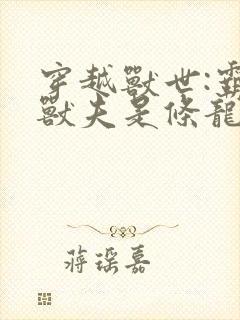 穿越獸世:
獸夫是條龍
蔣琛嘉